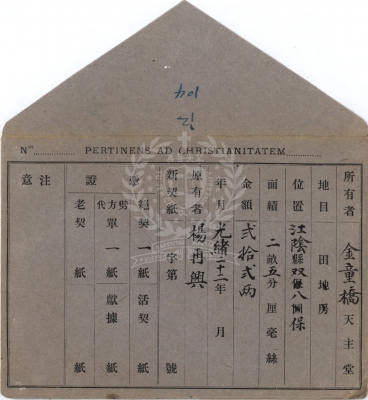 N° PERTINENS AD CHRISTIANITATEM
所有者 金童橋 天主堂
地目 田地房
位置 江陰縣双
面績 二畝五分 厘毫絲
金額 弍拾弍两
年月 光緒二十二年 月
原有者 楊再興
新契紙 字第 號
憑證
絕契一紙 活契 紙
代方單一紙 獻據 紙
老契 紙 紙
注意